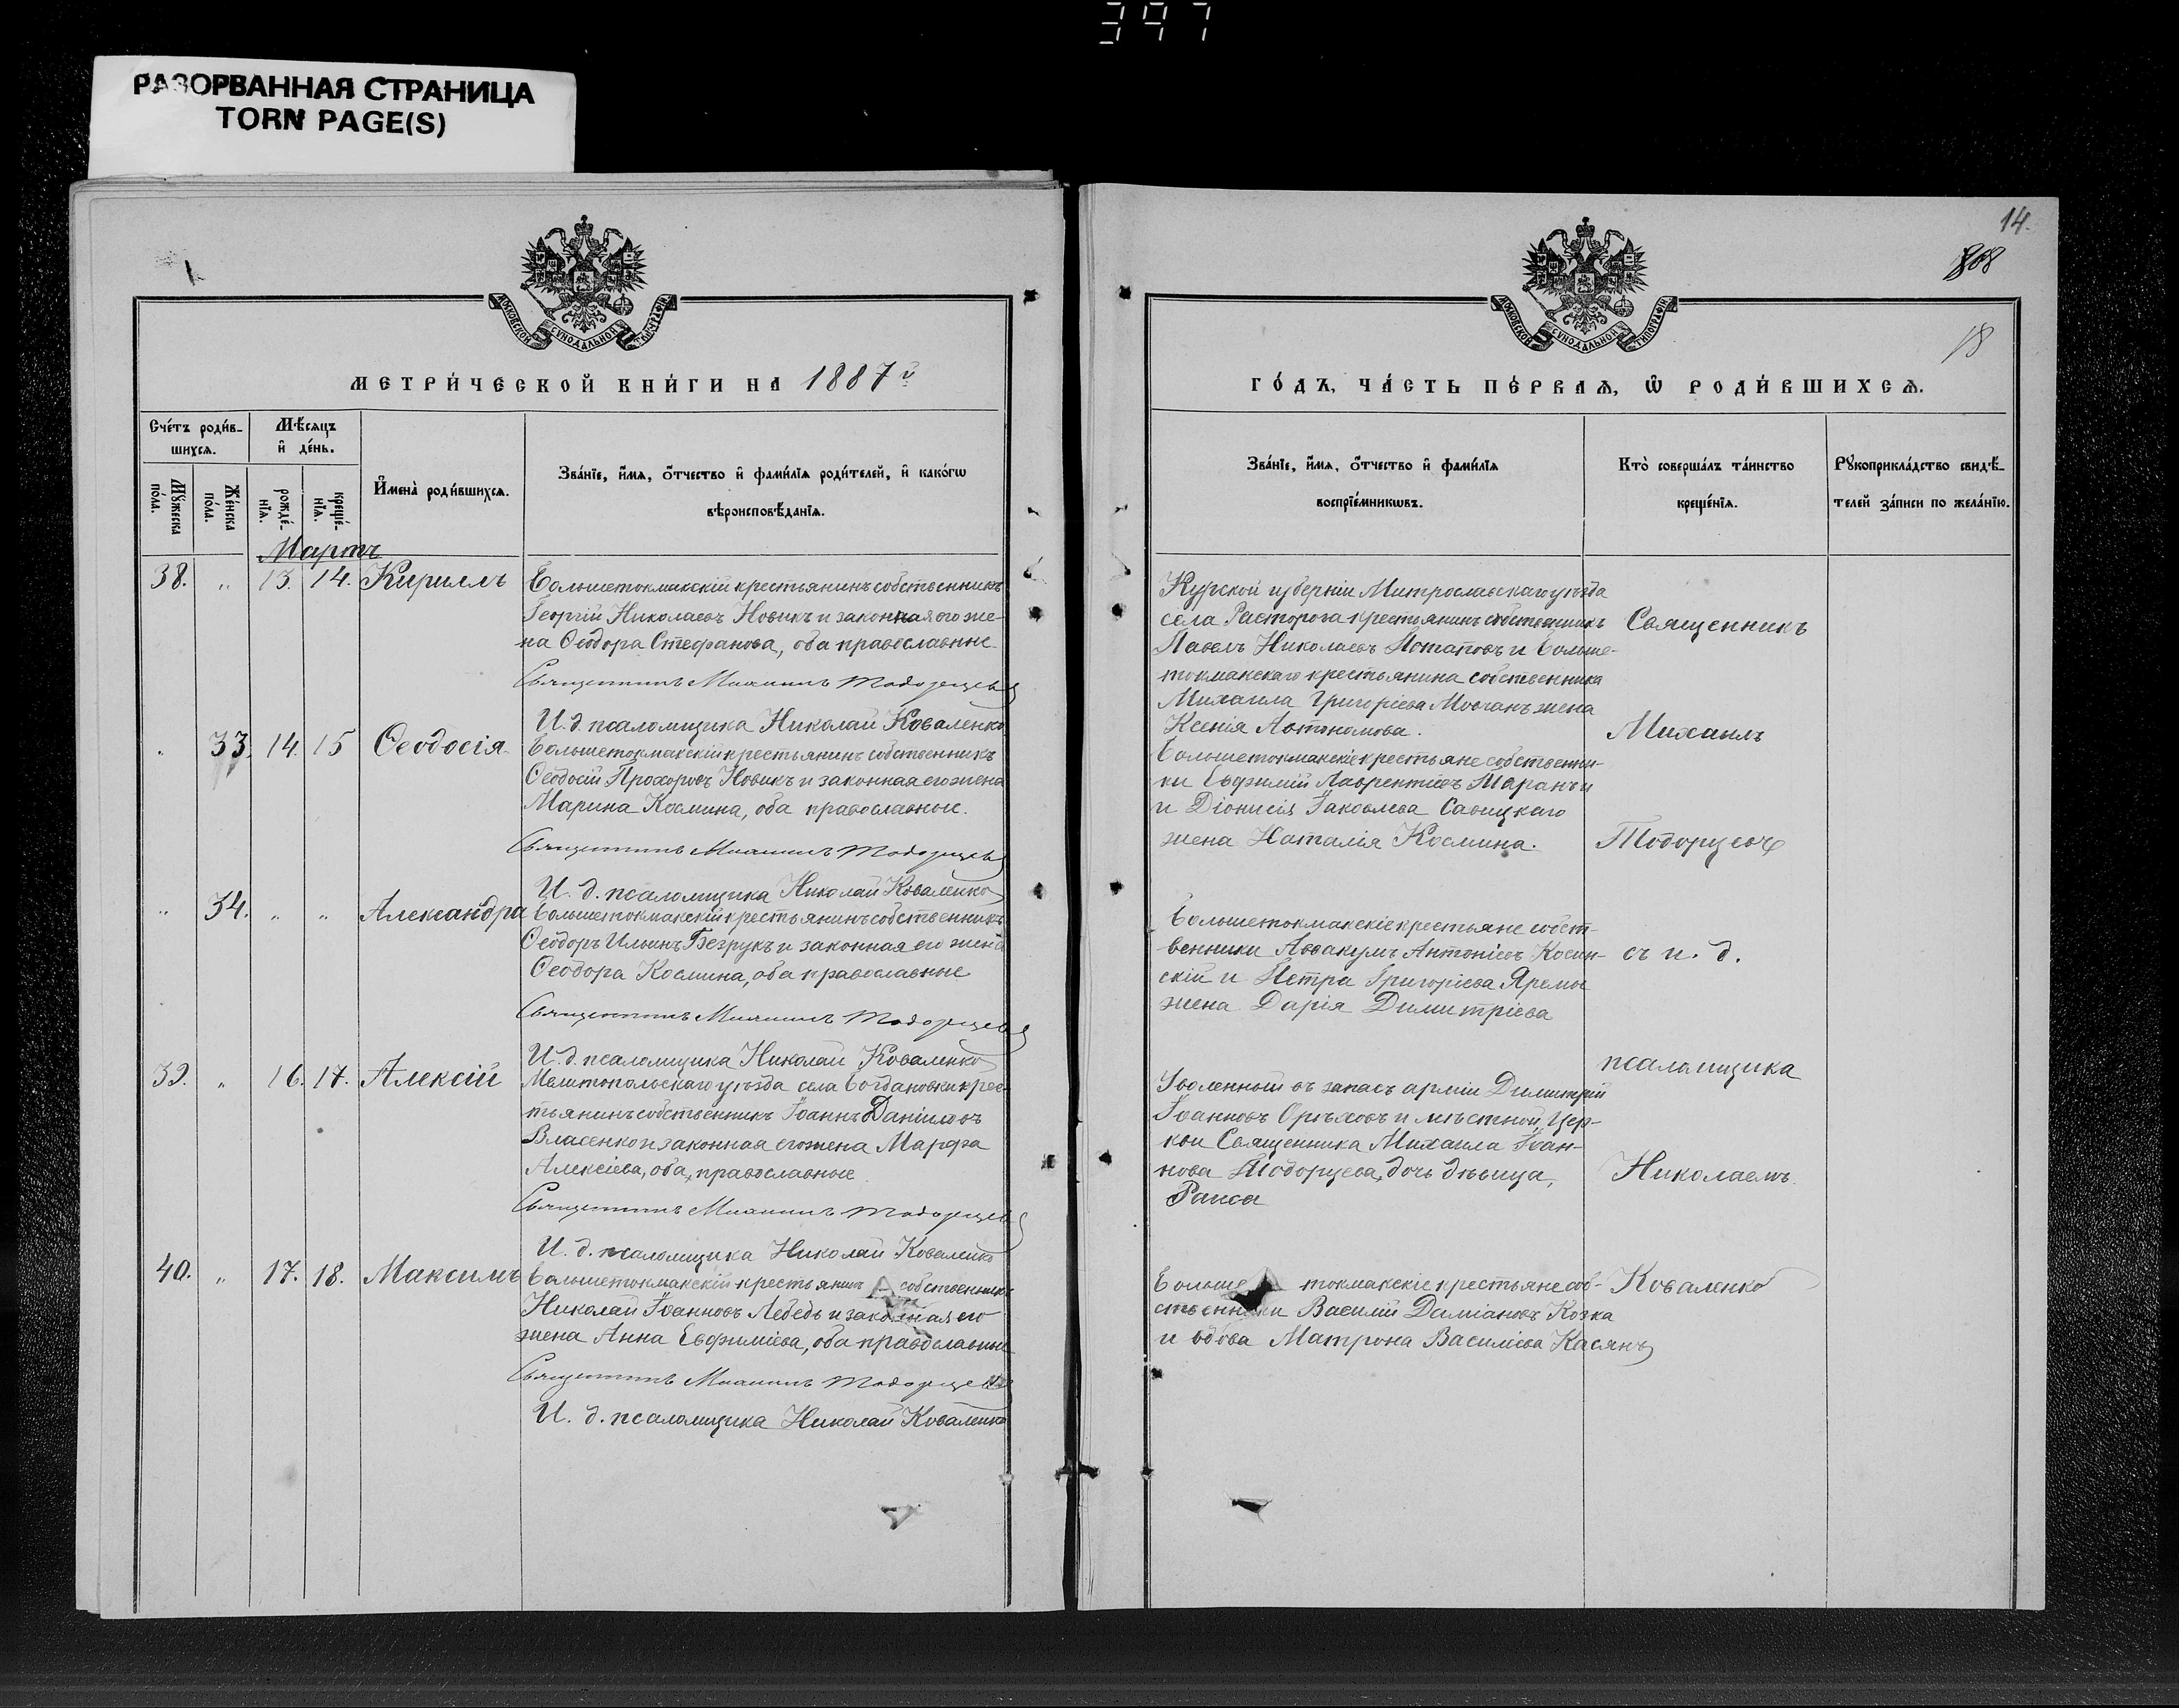 397
РАЗОРВАННАЯ СТРАНИЦА
TORN PAGE(S)
МОСКОВСКОЙ СУНОДАЛЬНОЙ ТИПОГРАФІИ
МЕТРИ́ЧЕСКОЙ КНИ́ГИ НА 1887й
Сче́тъ роди́в-
шихсѧ.
Мѣ́сѧцъ
и҆ де́нь.
И҆мена̀ роди́вшихсѧ.
Зва́нїе, и҆́мѧ, ѻ҆́тчество и҆ фами́лїѧ роди́телей, и҆ како́гѡ
вѣроисповѣ́данїѧ.
Мꙋ́жеска
по́ла.
Же́нска
по́ла.
рожде́-
нїѧ.
креще́-
нїѧ.
Мартъ
38. " 13. 14. Кириллъ
Большетокмакскій крестьянинъ собственникъ
Георгій Николаевъ Новикъ и законная его же-
на Ѳеодора Стефанова, оба православные
Священникъ Михаилъ Тодорцевъ
И. д. псаломщика Николай Коваленко
" 33. 14. 15 Ѳеодосія
Большетокмакскій крестьянинъ собственникъ
Ѳеодосій Прохоровъ Новикъ и законная его жена
Марина Космина, оба православные.
Священникъ Михаилъ Тодорцевъ
И. д. псаломщика Николай Коваленко
" 34. " " Александра
Большетокмакскій крестьянинъ собственникъ
Ѳеодоръ Ильинъ Безрукъ и законная его жена
Ѳеодора Космина, оба православные
Священникъ Михаилъ Тодорцевъ
И. д. псаломщика Николай Коваленко
39. " 16. 17. Алексій
Мелитопольскаго уѣзда села Богдановки крес-
тьянинъ собственникъ Іоаннъ Даніиловъ
Власенко и законная его жена Марфа
Алексіева, оба православные
Священникъ Михаилъ Тодорцевъ
И. д. псаломщика Николай Коваленко
40. " 17. 18. Максимъ
Большетокмакскій крестьянинъ собственникъ
Николай Іоанновъ Лебедь и законная его
жена Анна Евфиміева, оба православные
Священникъ Михаилъ Тодорцевъ
И. д. псаломщика Николай Коваленко
14.
18
МОСКОВСКОЙ СУНОДАЛЬНОЙ ТИПОГРАФІИ
ГО́ДЪ, ЧА́СТЬ ПЕ́РВАѦ, Ѡ҆ РОДИ́ВШИХСѦ.
Зва́нїе, и҆́мѧ, ѻ҆́тчество и҆ фами́лїѧ
воспрїе́мникѡвъ.
Кто̀ соверша́лъ та́инство
креще́нїѧ.
Рꙋкоприкла́дство свидѣ́-
телей за́писи по жела́нїю.
Курской губерніи
села крестьянинъ собственникъ
Павелъ Николаевъ Потаповъ и Больше-
токмакскаго крестьянина собственника
Михаила Григоріева Мовчанъ жена
Ксенія Автономова.
Большетокмакскіе крестьяне собственни-
ки Евфимій Лаврентіевъ
и Діонисія Іаковлева Савицкаго
жена Наталія Космина.
Большетокмакскіе крестьяне собст-
венники Аввакумъ Антоніевъ Косин-
скій и Петра Григоріева Яремы
жена Дарія Димитріева
Уволенный въ запасъ арміи Димитрій
Іоанновъ Орѣховъ и мѣстной Цер-
кви Священника Михаила Іоан-
нова Тодорцева, дочь дѣвица,
Раиса
Больше токмакскіе крестьяне соб-
ственники Василій Даміановъ Козка
и вдова Матрона Василіева Касянъ
Священникъ
Михаилъ
Тодорцевъ
съ и. д.
псаломщика
Николаемъ
Коваленко